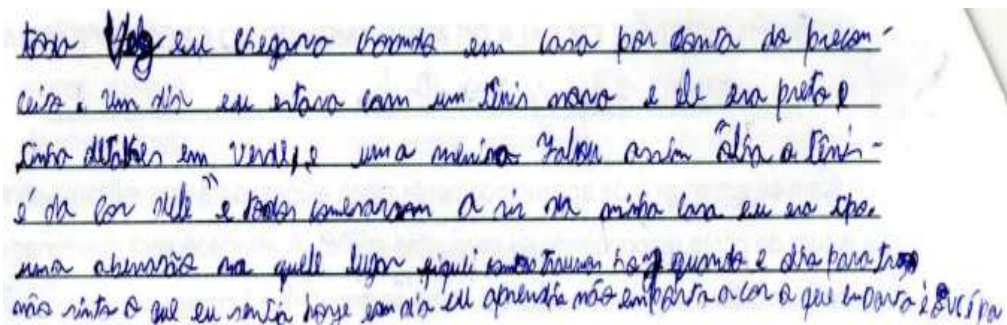 toda Vez eu chegava chorando em casa por conta do precon-
ceito e um dia eu estava com um tênis novo e ele era preto e
tinha detalhes em verde, e uma menina falou assim "olha o tênis
e da cor dele" e todos comesaram a rir da minha cara eu era tipo.
uma aberração na quele lugar fiquei traumas hoje quando e olho para tras
não sinto o que eu sentia hoje em dia eu aprendi a não emporta a cor o que emporta é